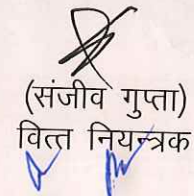 (संजीव गुप्ता)
वित्त नियन्त्रक